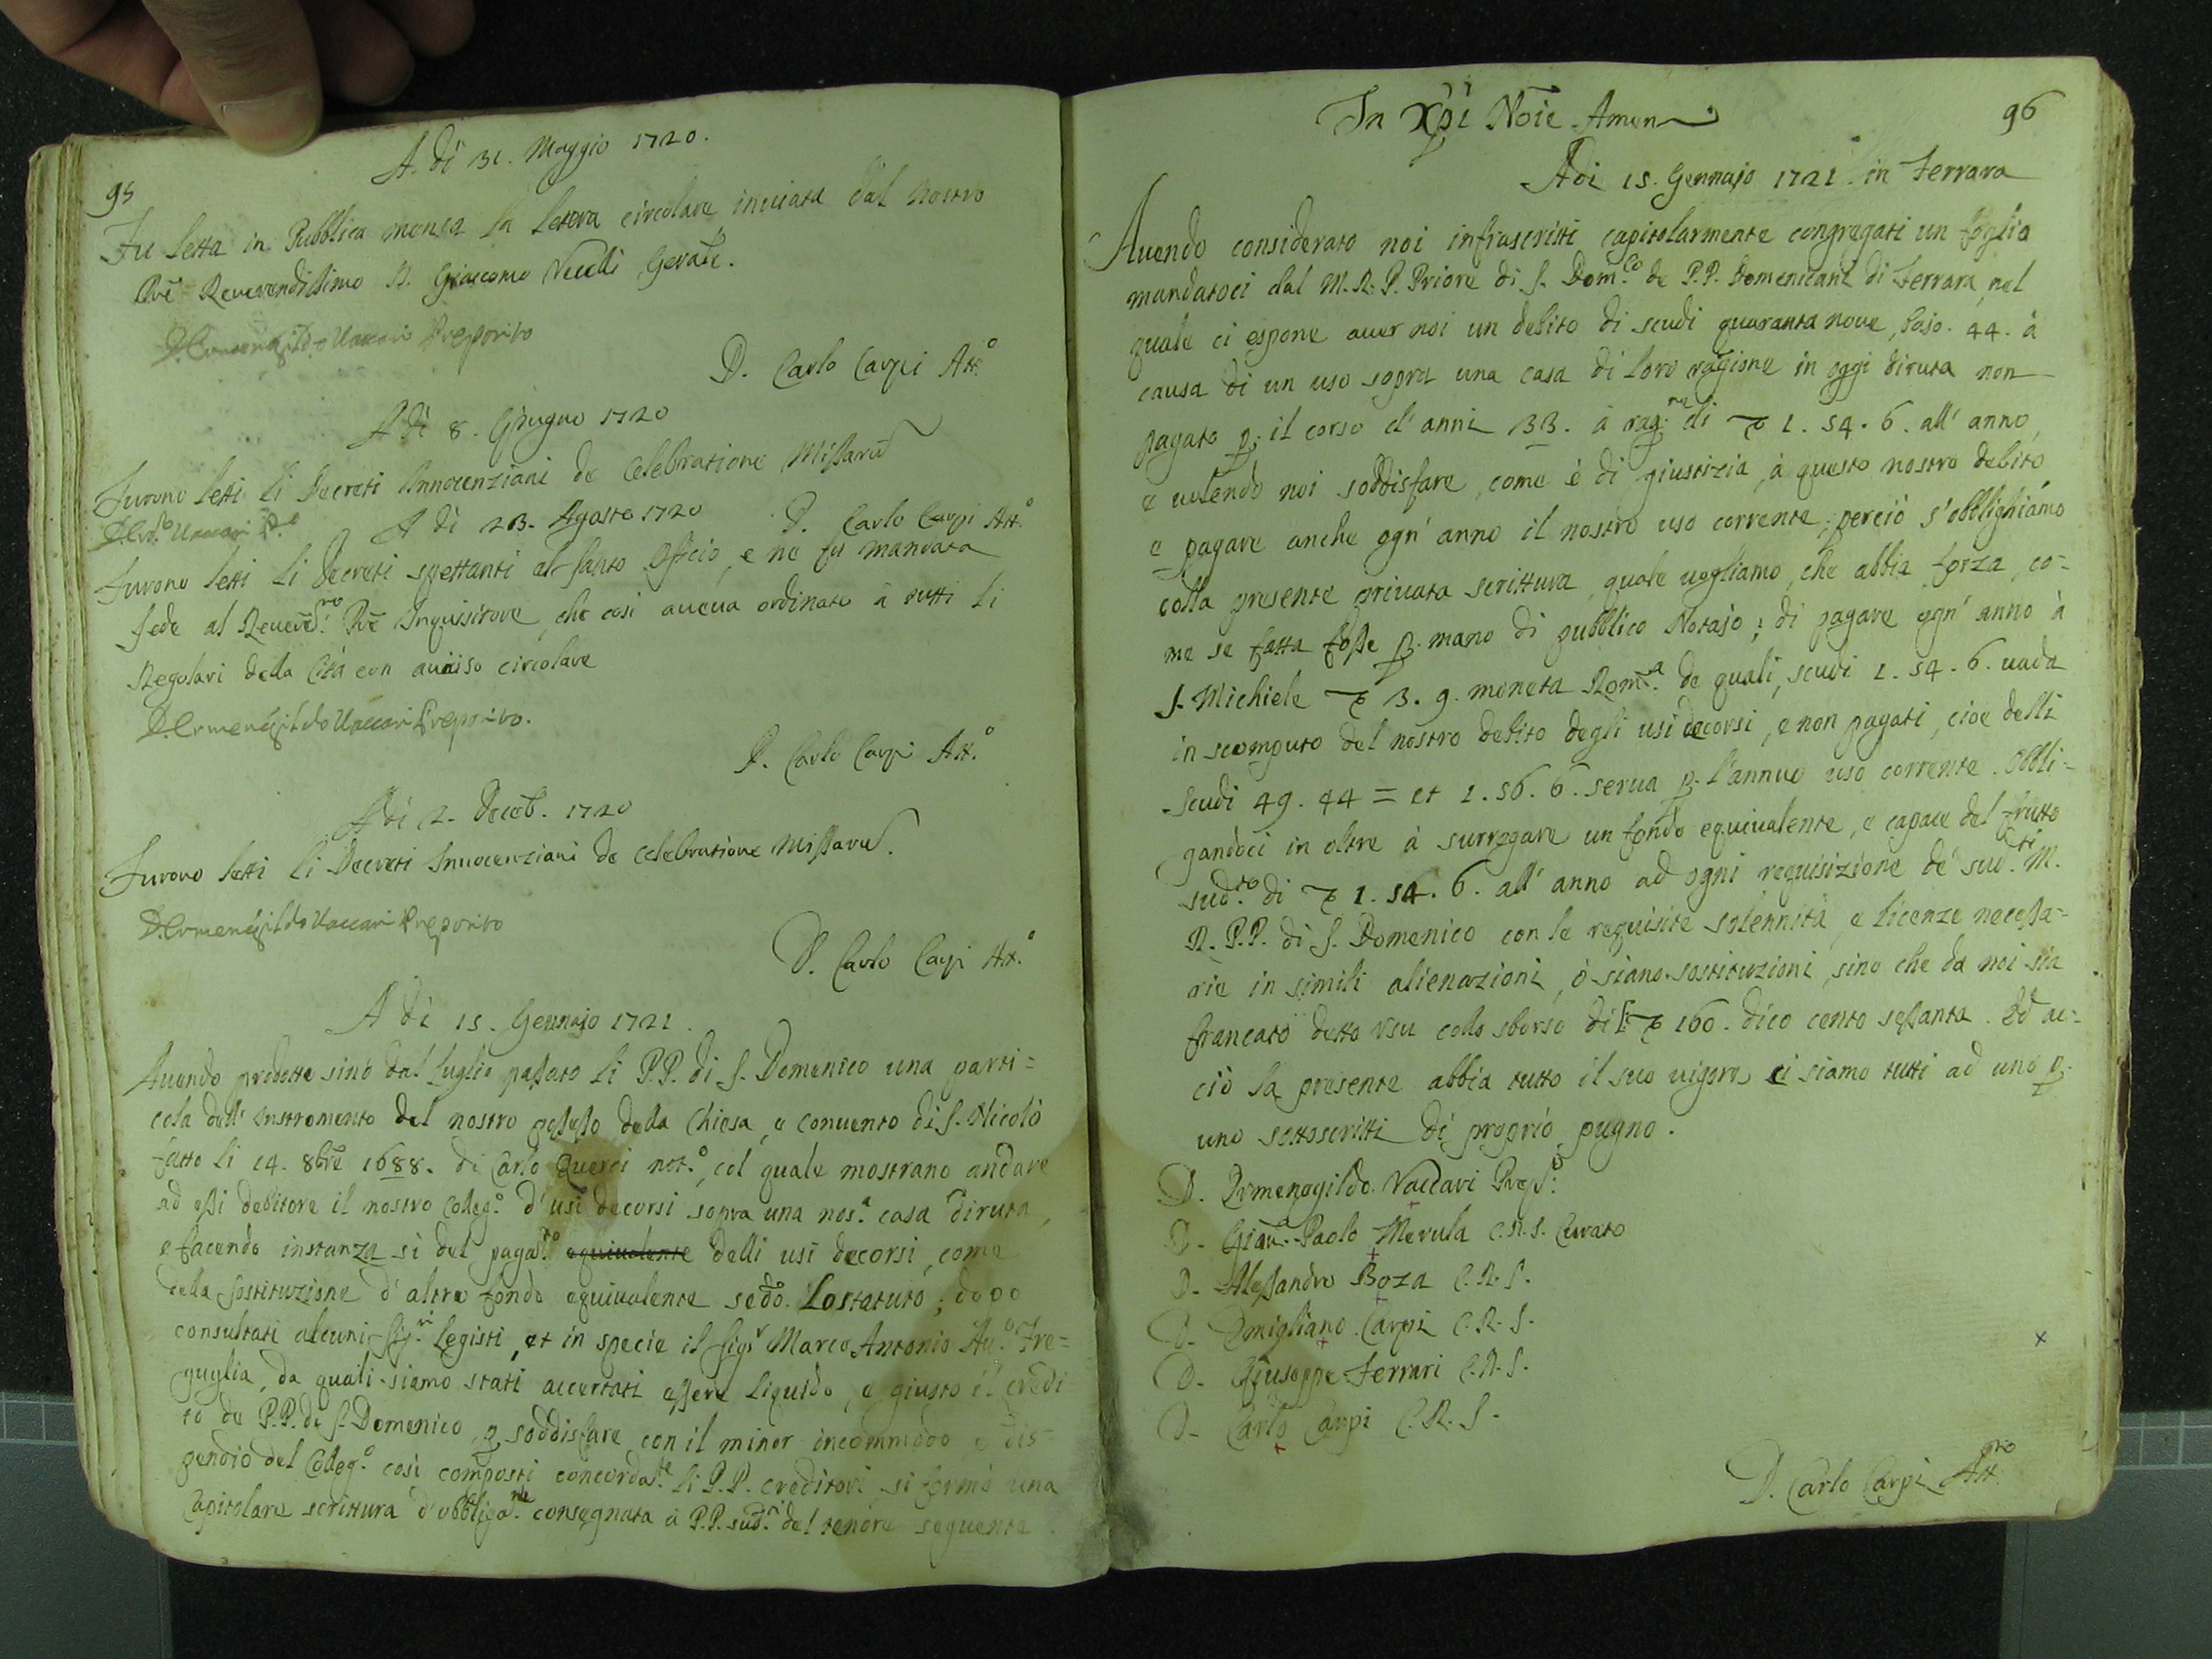 95
A. di 31. Maggio 1720.
Fu letta in Pubblica mensa la lettera circolare inuiata dal nostro
Prē Reuerendissimo D. Giacomo Vecelli Geralē.
D. Ermenegildo Vaccari Preposito
D. Carlo Carpi Att.º
A dì 8. Giugno 1720
Furono letti li Decreti Innocenziani de Celebratione Missarū
D. Erm.do Vaccari P.º
D. Carlo Carpi Att.º
A dì 23. Agosto 1720
Furono letti li Decreti spettanti al santo Officio, e ne fu mandata
fede al Reuerēd.mo Prē Inquisitore, che così aueua ordinato à tutti li
Regolari della Città con auuiso circolare
D. Ermenegildo Vaccari Preposito.
D. Carlo Carpi Att.º
A dì 2. Decēb. 1720
Furono letti li Decreti Innocenziani de celebratione Missarū.
D. Ermenegildo Vaccari Preposito
D. Carlo Carpi Att.º
A dì 15. Gennajo 1721.
Auendo prodotto sino dal Luglio passato li P.P. di S. Domenico una parti=
cola dell' Instromento del nostro possesso della Chiesa, e Conuento di S. Nicolò
fatto li 14. 8brē 1688. di Carlo Querci not.º, col quale mostrano andare
ad essi debitore il nostro Colleg.º d' usi decorsi sopra una nos.a casa diruta,
e facendo instanza sì del paga.to equiualente delli usi decorsi, come
della sostituzione d' altro fondo equiualente sedō. Lostatuto; dopo
consultati alcuni Sig.ri Legisti, et in specie il Sig.r Marco Antonio Au.º Fre=
guglia, da quali siamo stati accertati essere liquido, e giusto il credi
to de P.P. di S. Domenico, p. soddisfare con il minor incommodo e dis=
pendio del Colleg.º così composti concorda.te li P.P. creditori, si formò una
Capitolare scrittura d' obbliga.ne consegnata à P.P. sud.ri del tenore seguente
96
In Xpi Noīe Amen
Adi 15. Gennajo 1721. in Ferrara
Auendo considerato noi infrascritti capitolarmente congregati un foglio
mandatoci dal M. R. P. Priore di S. Dom.co de P.P. Domenicani di Ferrara, nel
quale ci espone auer noi un debito di scudi quaranta noue, bajo. 44. à
causa di un uso sopra una casa di loro ragione in oggi diruta non
pagato p. il corso d' anni 33. à rag.ne di ∇ 1. 54. 6. all' anno,
e uolendo noi soddisfare, come è di giustizia, à questo nostro debito
e pagare anche ogn' anno il nostro uso corrente; perciò s' obblighiamo
colla presente priuata scrittura, quale uogliamo, che abbia forza, co=
me se fatta fosse p. mano di pubblico Notajo; di pagare ogn' anno à
S. Michiele ∇ 3. 9. moneta Rom.a de quali, scudi 1. 54. 6. uada
in scomputo del nostro debito degli usi decorsi, e non pagati, cioe delli
scudi 49. 44 = et 1. 56. 6. serua p. l'annuo uso corrente. Obbli=
gandoci in oltre à surrogare un fondo equiualente, e capace del frutto
sud.to di ∇ 1. 54. 6. all' anno ad ogni requisizione de' sud.ti M.
R. P.P. di S. Domenico con le requisite solennità, e licenze necessa=
rie in simili alienazioni, ò siano sostituzioni, sino che da noi sia
francato detto Vsu collo sborso di ∇ 160. dico cento sessanta. Ed ac=
ciò la presente abbia tutto il suo uigore ci siamo tutti ad uno p.
uno sottoscritti di proprio pugno.
D. Ermenegildo Vaccari Prep.º
D. Gian. Paolo Merula C.R.S. Curato
D. Alessandro Boza C.R.S.
D. Emigliano Carpi C.R.S.
D. Giuseppe Ferrari C.R.S.
D. Carlo Carpi C.R.S.
D. Carlo Carpi Att.rio